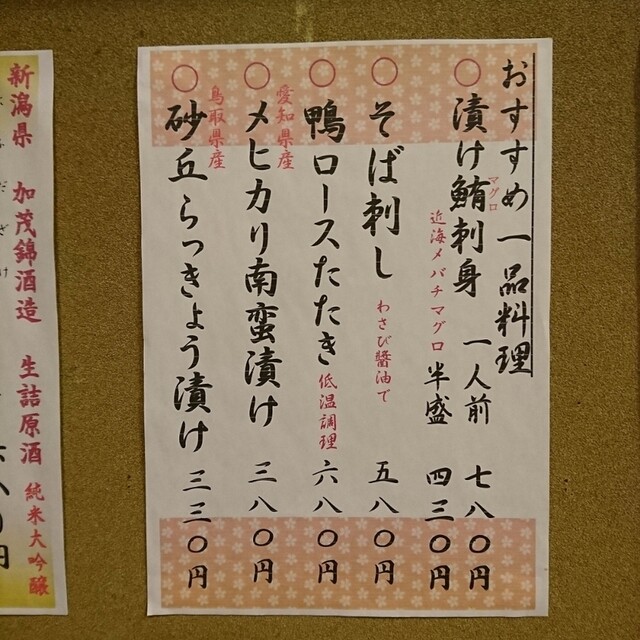 おすすめ一品料理
○漬け鮪刺身 一人前 七八〇円
マグロ
近海メバチマグロ 半盛 四三〇円
○そば刺し わさび醬油で 五八〇円
○鴨ロースたたき 低温調理 六八〇円
愛知県産
○メヒカリ南蛮漬け 三八〇円
鳥取県産
○砂丘らっきょう漬け 三三〇円
新潟県 加茂錦酒造 生詰原酒 純米大吟醸